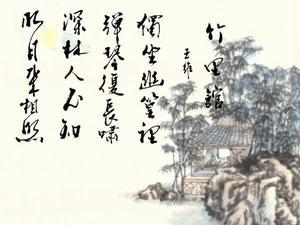 竹里館
王維
獨坐幽篁裡
彈琴復長嘯
深林人不知
明月來相照